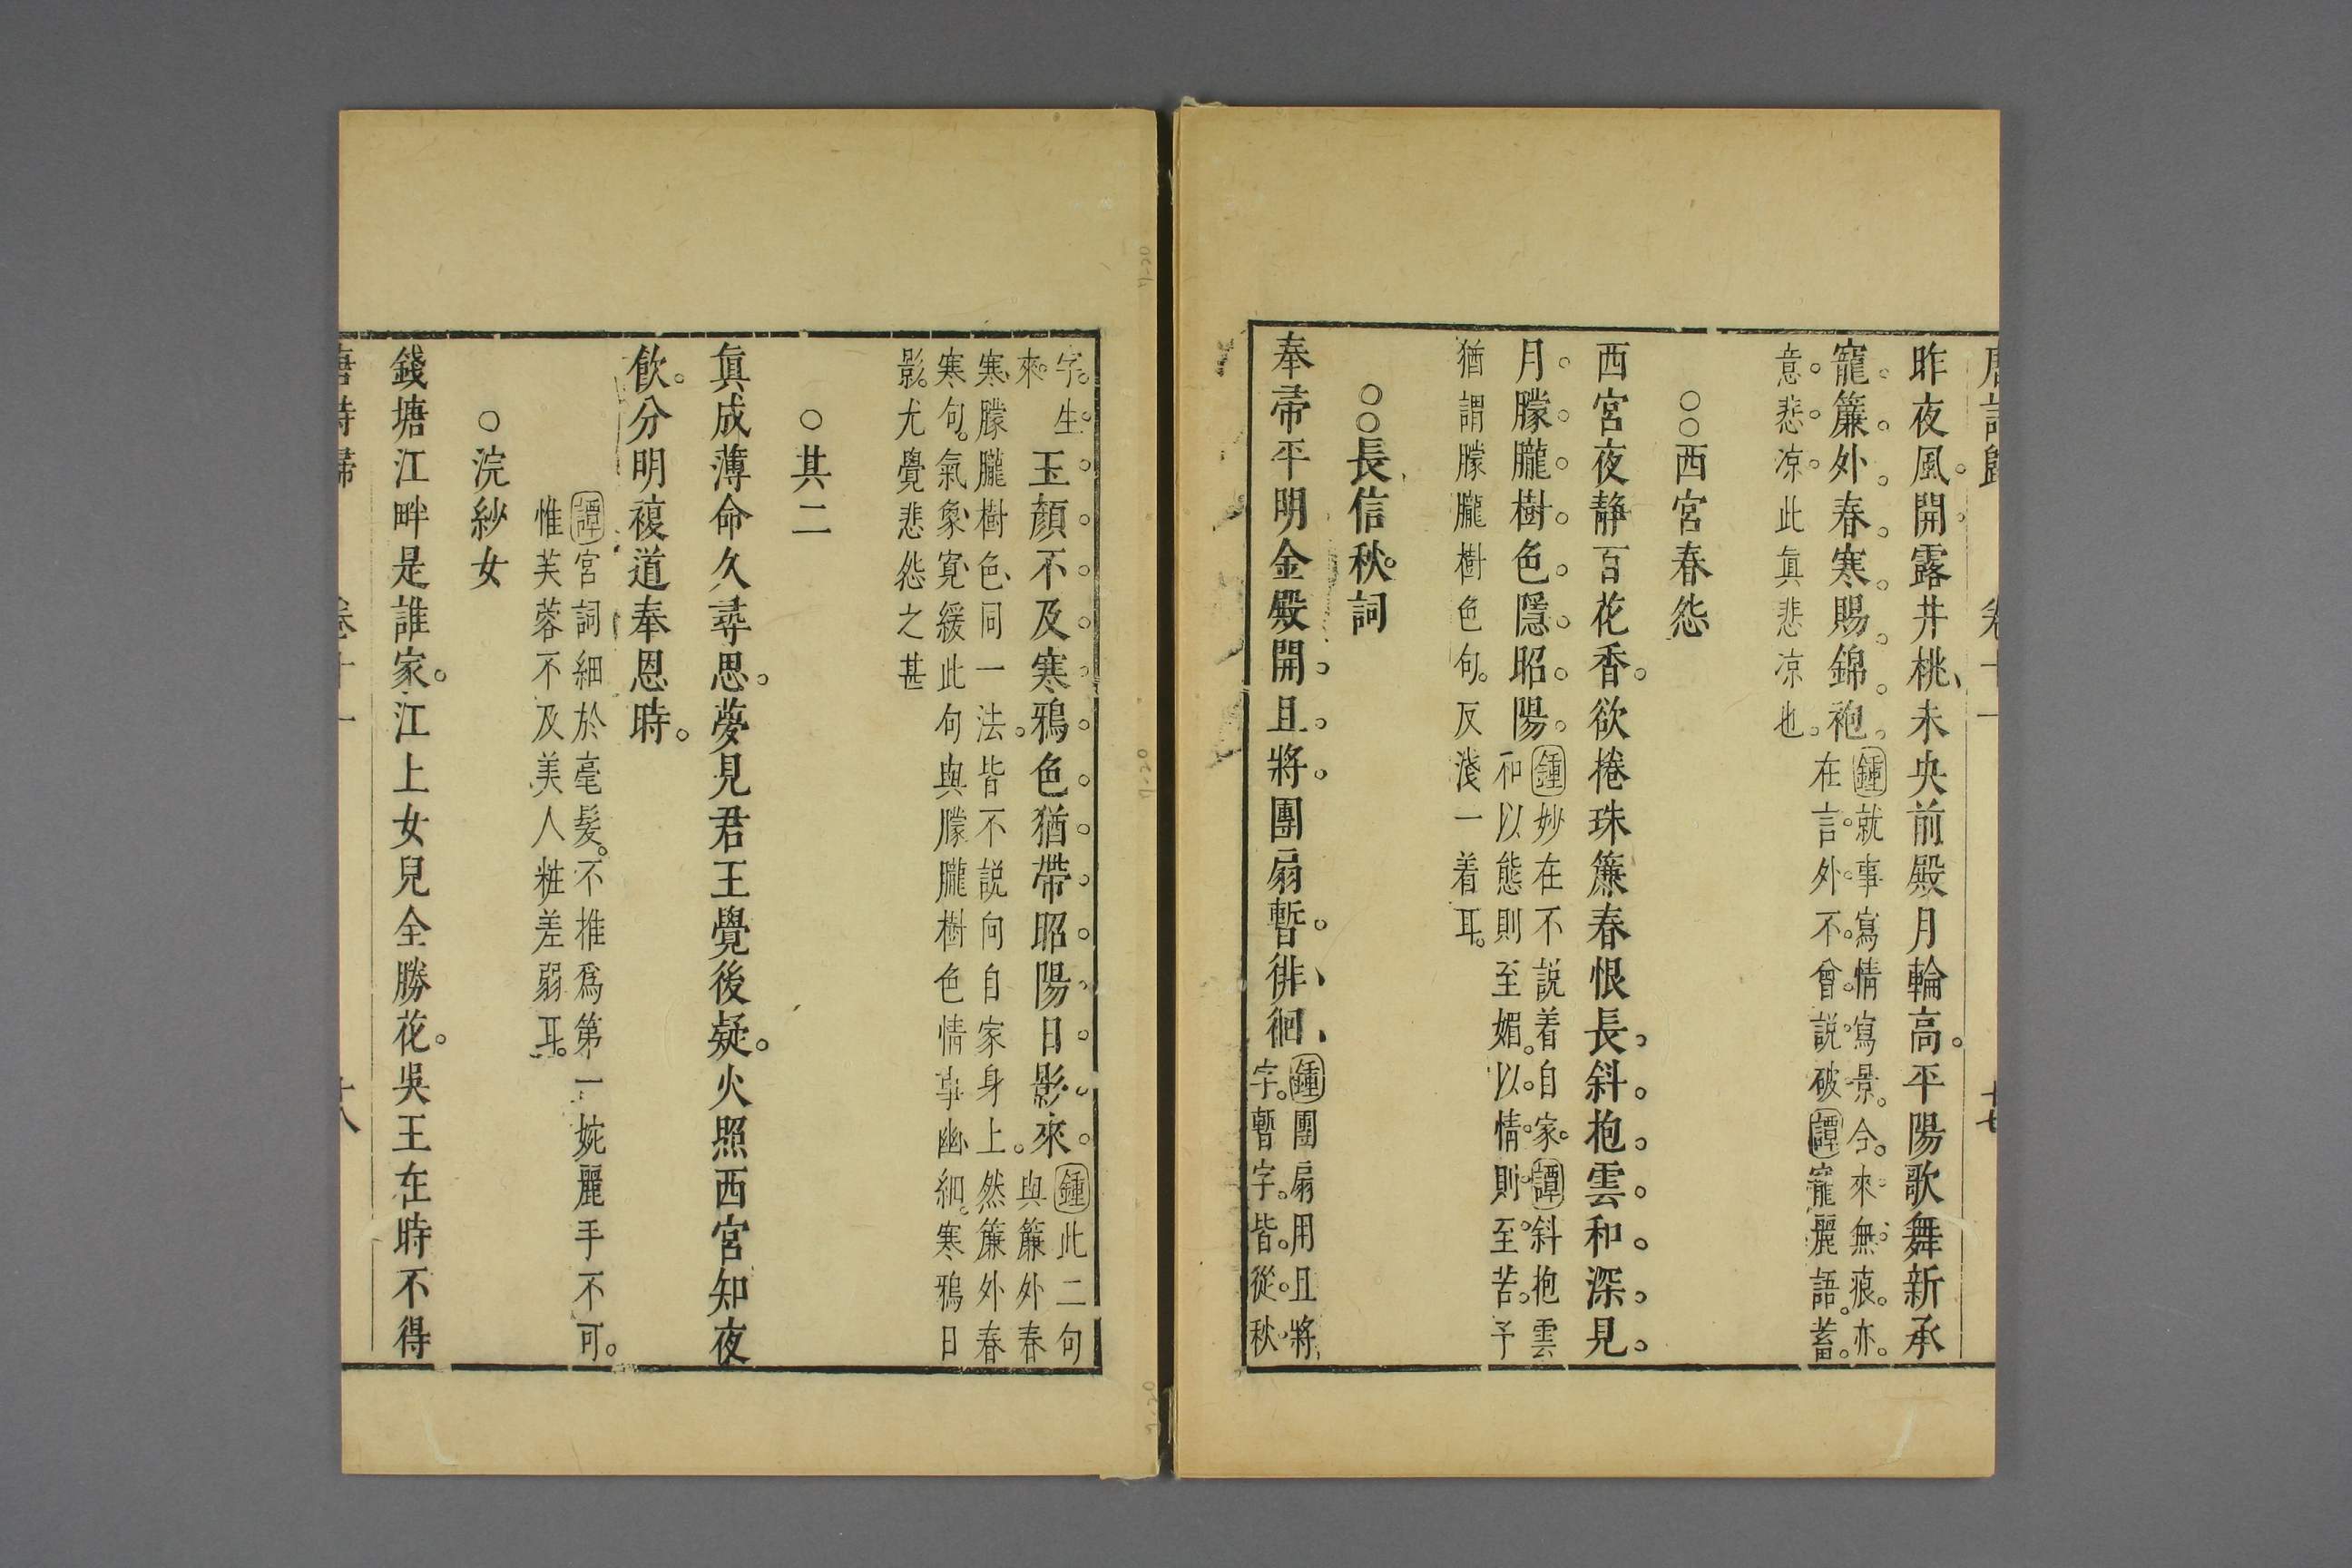 唐詩歸 卷十一 十七
昨夜風開露井桃未央前殿月輪高平陽歌舞新承
寵簾外春寒賜錦袍
鍾就事寫情寫景合來無痕亦
在言外不曾說破譚寵麗語蓄
意悲涼此眞悲涼也
○○西宮春怨
西宮夜靜百花香欲捲珠簾春恨長斜抱雲和深見
月朦朧樹色隱昭陽
鍾妙在不説着自家譚斜抱雲
和以態則至媚以情則至苦予
猶謂朦朧樹色句反淺一着耳
○○長信秋詞
奉帚平明金殿開且將團扇暫徘徊
鍾團扇用且將
字暫字皆從秋
字生
來
玉顏不及寒鴉色猶帶昭陽日影來
鍾此二句
與簾外春
寒朦朧樹色同一法皆不説向自家身上然簾外春
寒句氣象寬緩此句與朦朧樹色情事幽細寒鴉日
影尤覺悲怨之甚
○其二
眞成薄命久尋思夢見君王覺後疑火照西宮知夜
飲分明複道奉恩時
譚宮詞細於毫髮不推爲第一婉麗手不可
惟芙蓉不及美人粧差弱耳
○浣紗女
錢塘江畔是誰家江上女兒全勝花吳王在時不得
唐詩歸 卷十一 十八